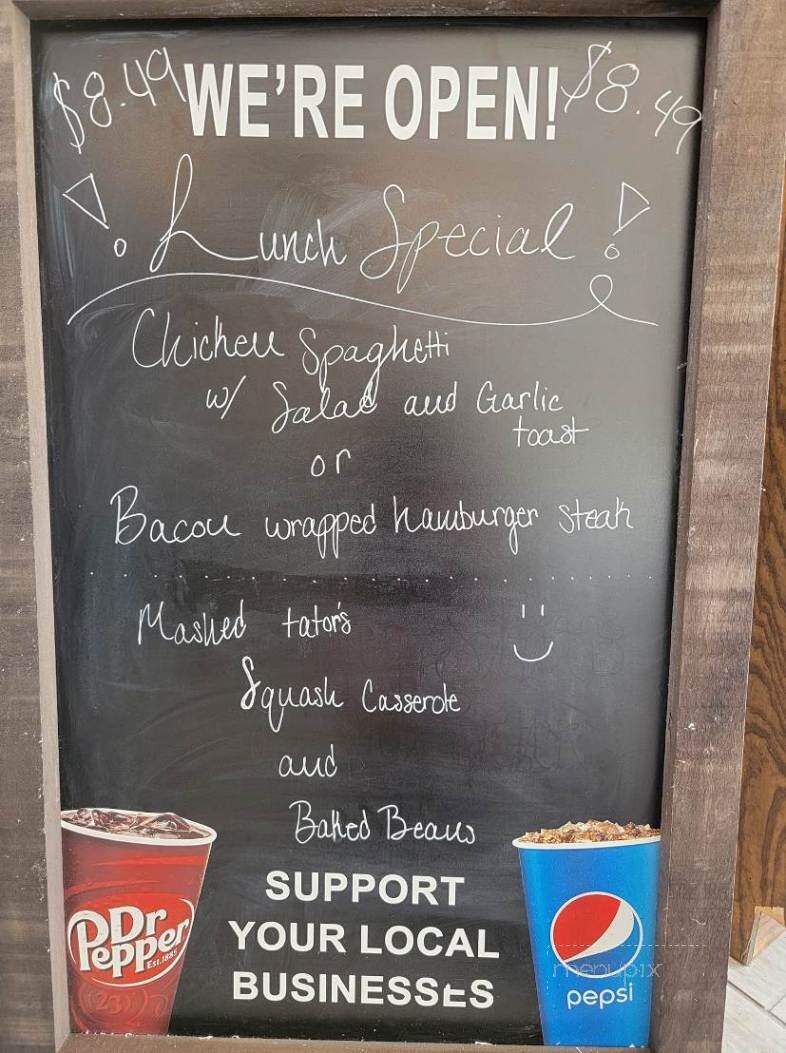 $8.49 WE'RE OPEN! $8.49
! Lunch Special !
Chicken Spaghetti
w/ Salad and Garlic
toast
or
Bacon wrapped hamburger steak
Mashed tator's
Squash Casserole
and
Baked Beans
SUPPORT
YOUR LOCAL
BUSINESSES
Dr
Pepper
EST. 1885
23
menupix
pepsi